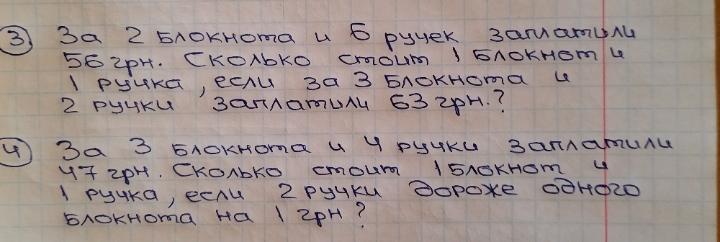 3) За 2 блокнота и 6 ручек заплатили
56 грн. Сколько стоит 1 блокнот и
1 ручка, если за 3 блокнота и
2 ручки заплатили 63 грн.?
4) За 3 блокнота и 4 ручки заплатили
47 грн. Сколько стоит 1 блокнот и
1 ручка, если 2 ручки дороже одного
блокнота на 1 грн?